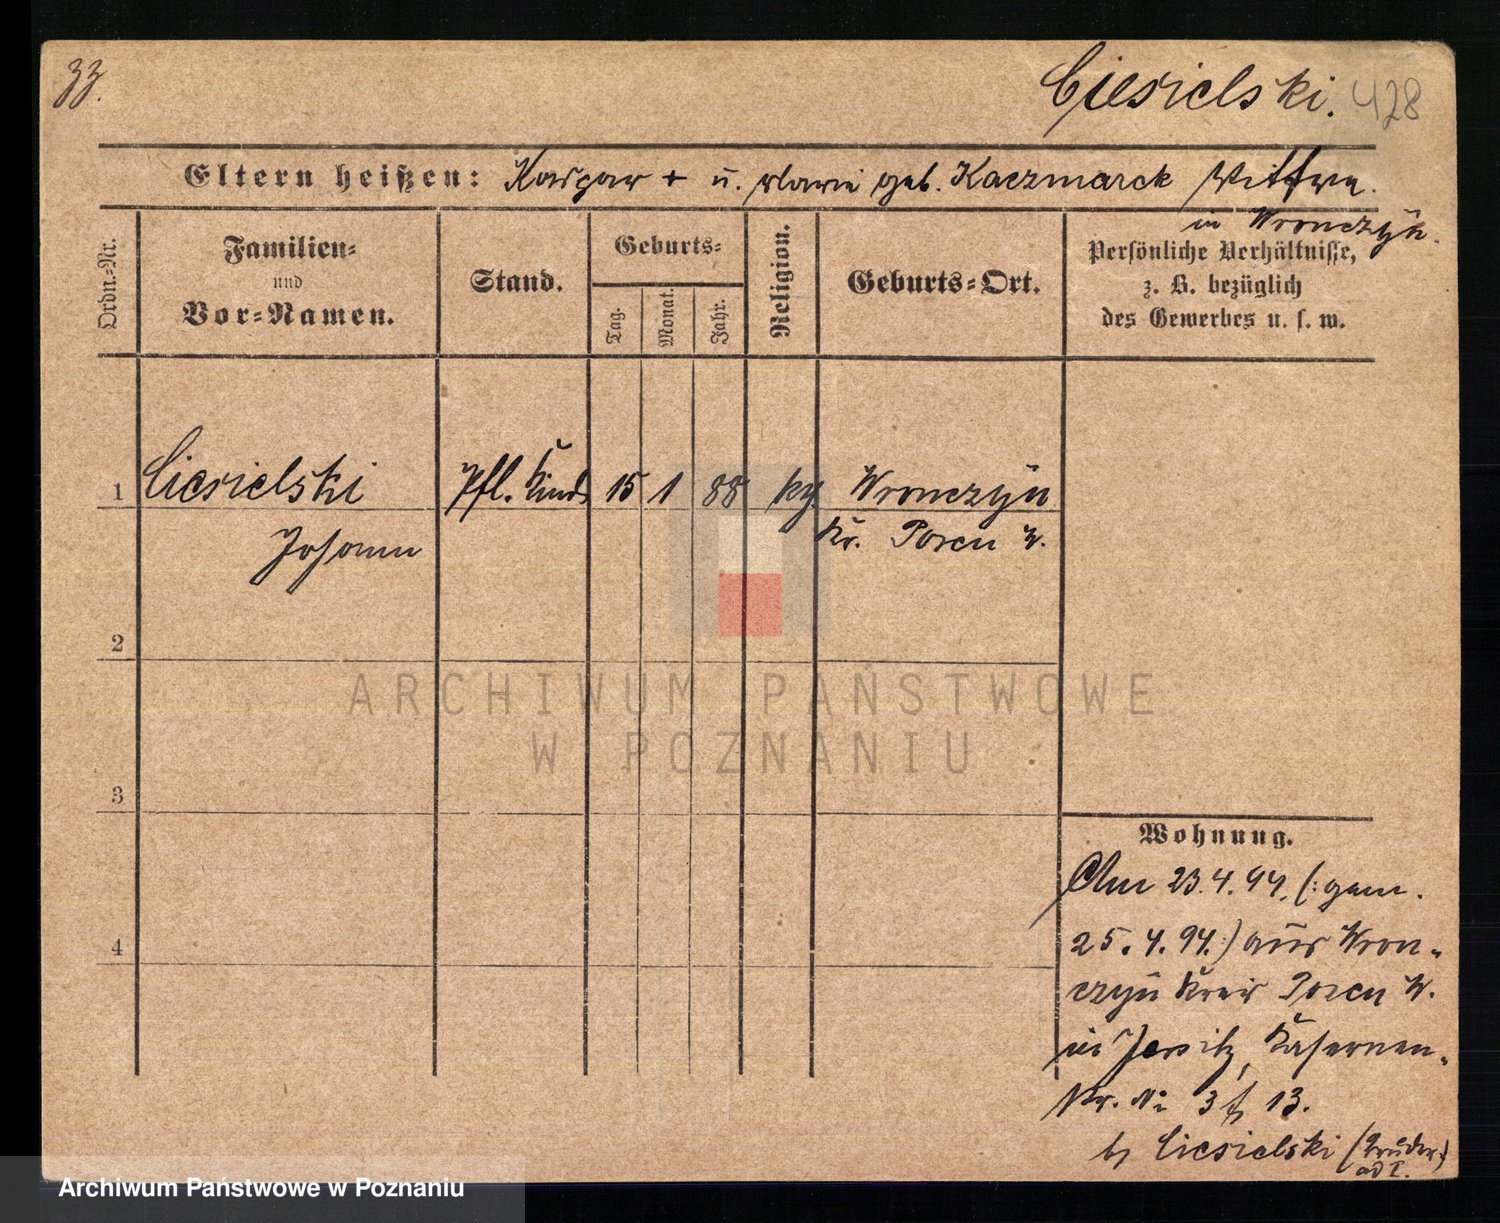 33.
Ciesielski.
428
Eltern heißen: Kaspar + u. Maria geb. Kaczmarek Wittwe.
in Wronczyn.
Ordn.-Nr.
Familien-
und
Vor-Namen.
Stand.
Geburts-
Tag.
Monat.
Jahr.
Religion.
Geburts-Ort.
Persönliche Verhältnisse,
z. B. bezüglich
des Gewerbes u. s. w.
1 Ciesielski Pfl. Kind 15 1 88 kg Wronczyn
Johann Kr. Posen W.
2
3
4
ARCHIWUM PAŃSTWOWE
W POZNANIU
Wohnung.
Am 23.4.94. (:gem.
25.4.94.:) aus Wron-
czyn Kreis Posen W.
in Jersitz, Kasernen-
Str. No 3 13.
b/ Ciesielski (Bruder)
ad I.
Archiwum Państwowe w Poznaniu